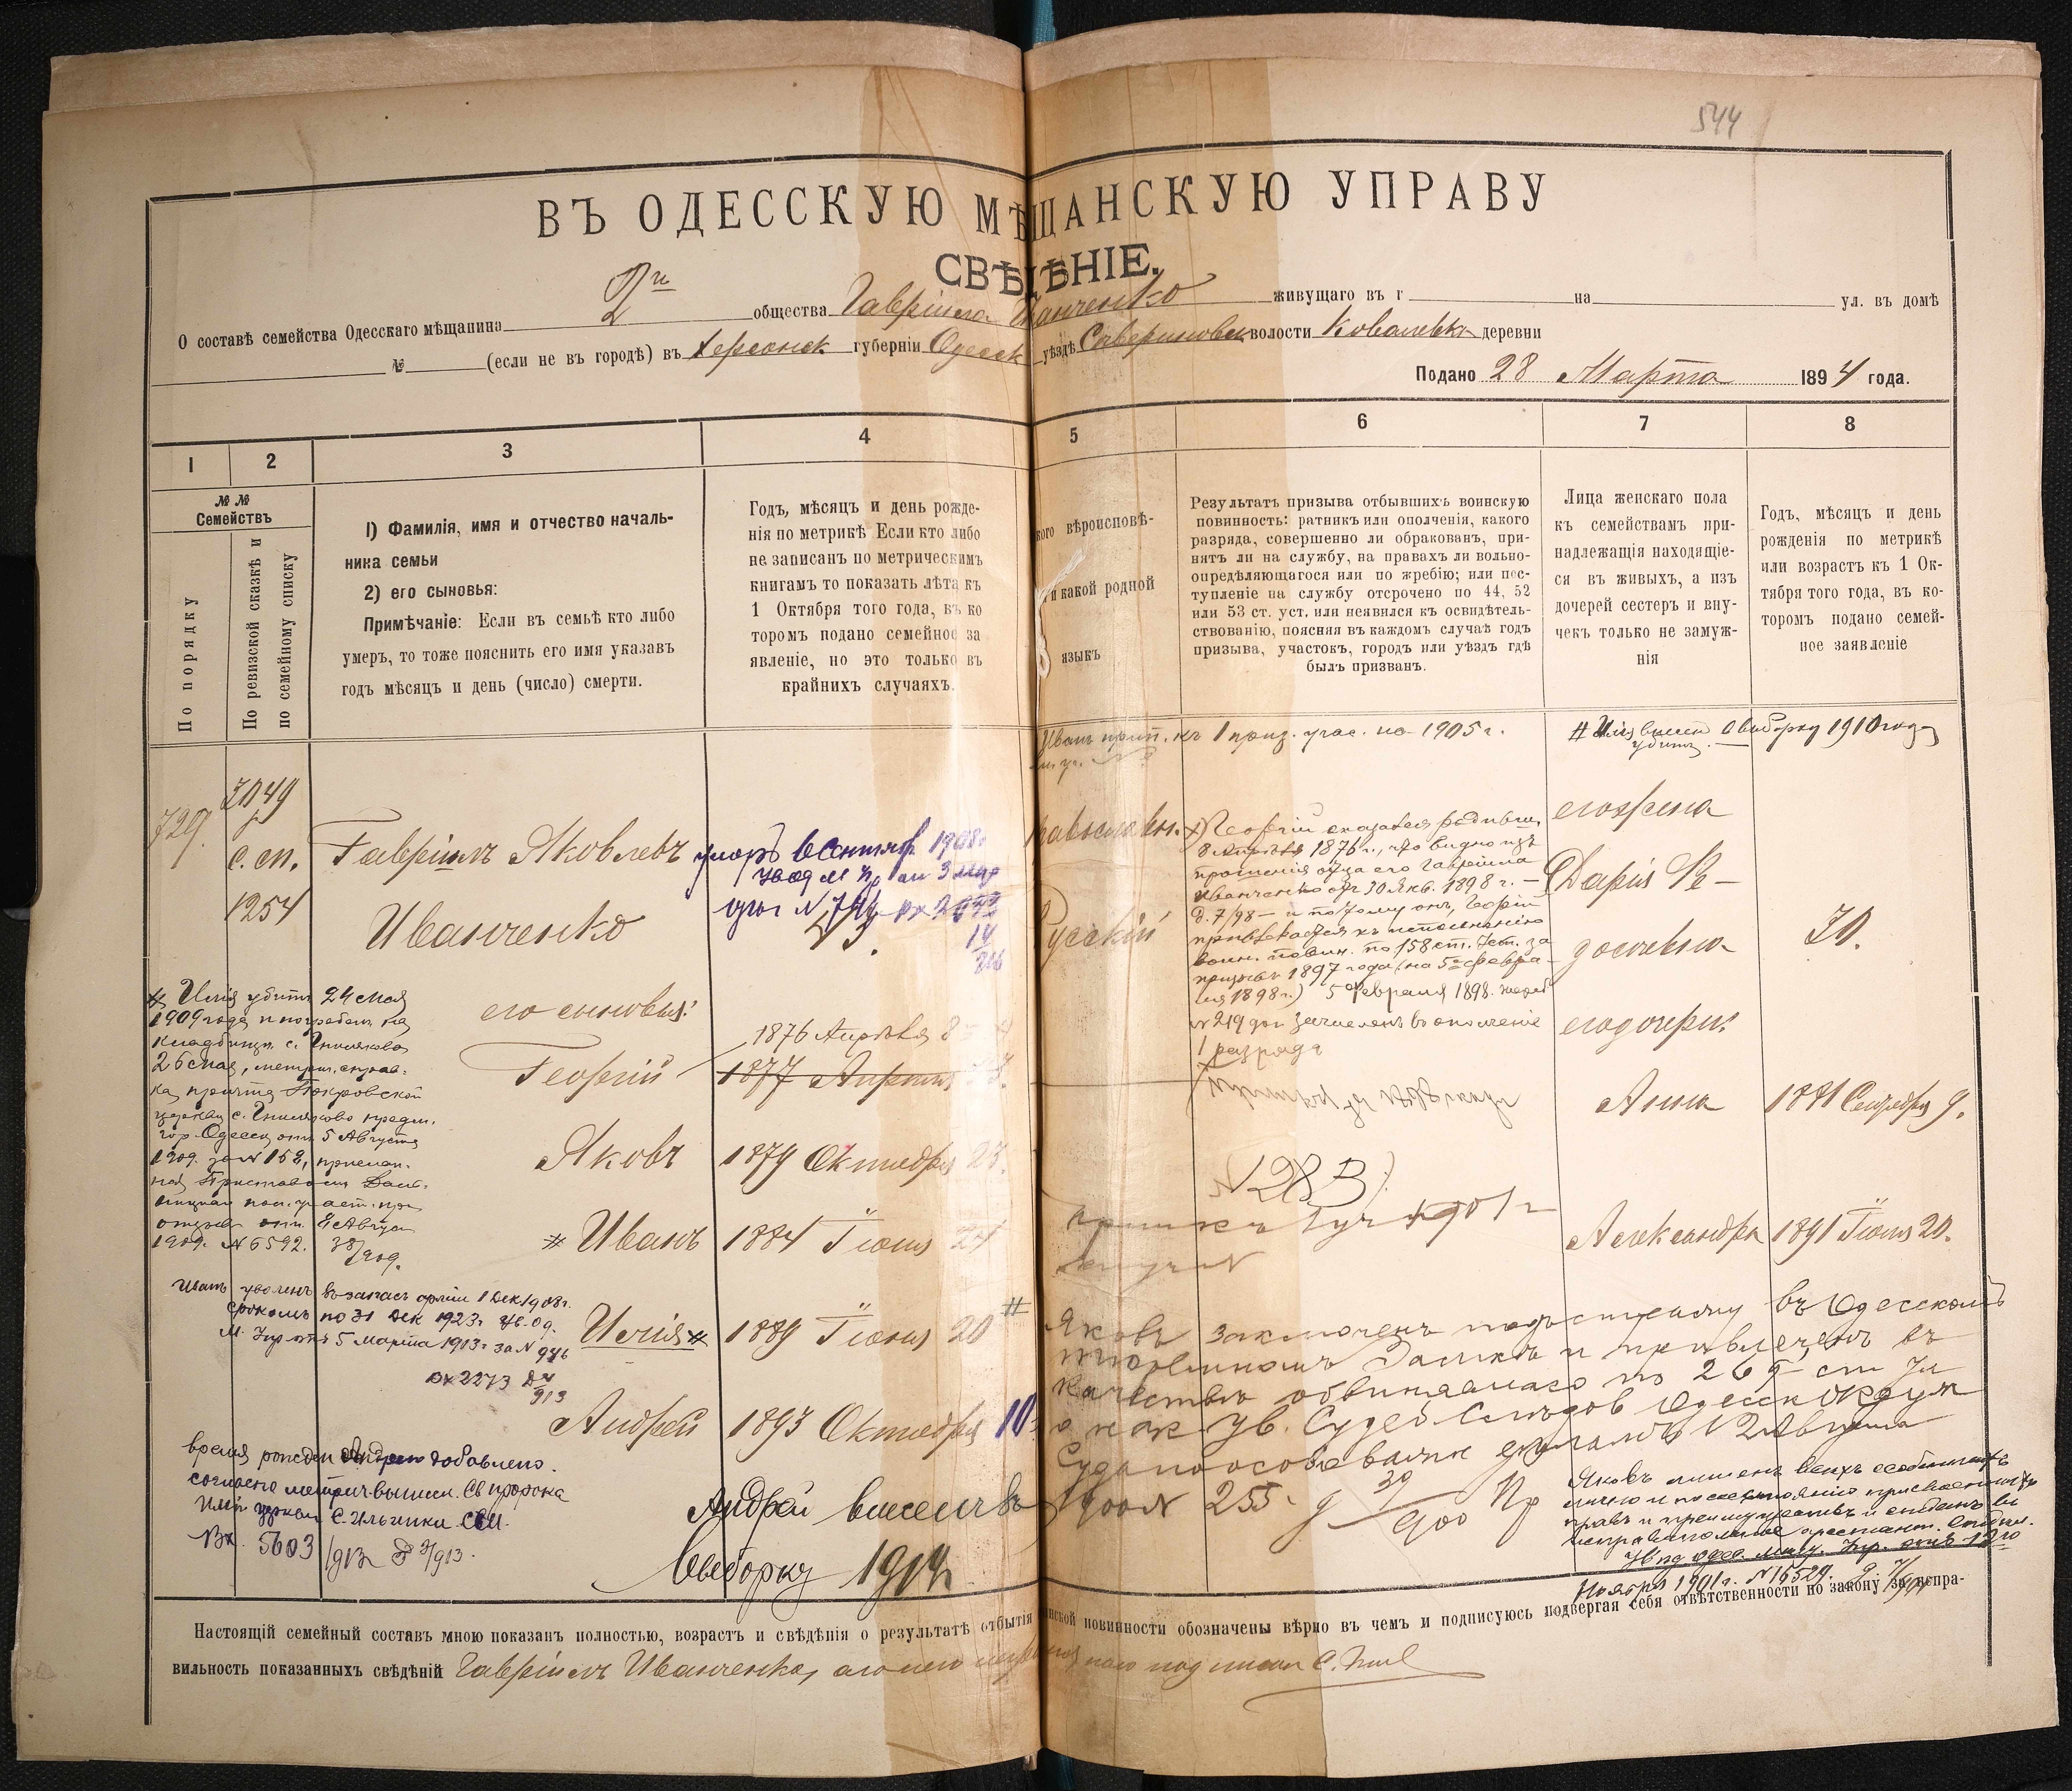 544
ВЪ ОДЕССКУЮ МѢЩАНСКУЮ УПРАВУ
СВѢДѢНІЕ.
О составѣ семейства Одесскаго мѣщанина 2й общества Гавріила Иванченко живущаго въ г на ул. въ домѣ
№ (если не въ городѣ) въ Херсонск губерніи Одесск уѣздѣ Савериновск волости Ковалевка деревни
Подано 28 Марта 1894 года.
1 2 3 4 5 6 7 8
№№
Семействъ
По порядку
По ревизской сказкѣ и
по семейному списку
1) Фамилія, имя и отчество началь-
ника семьи
2) его сыновья:
Примѣчаніе: Если въ семьѣ кто либо
умеръ, то тоже пояснить его имя указавъ
годъ мѣсяцъ и день (число) смерти.
Годъ, мѣсяцъ и день рожде-
нія по метрикѣ Если кто либо
не записанъ по метрическимъ
книгамъ то показать лѣта къ
1 Октября того года, въ ко
торомъ подано семейное за
явленіе, но это только въ
крайнихъ случаяхъ.
кого вѣроисповѣ-
и какой родной
языкъ
Результатъ призыва отбывшихъ воинскую
повинность: ратникъ или ополченія, какого
разряда, совершенно ли обракованъ, при-
нятъ ли на службу, на правахъ ли вольно-
опредѣляющагося или по жребію; или пос-
тупленіе на службу отсрочено по 44, 52
или 53 ст. уст. или неявился къ освидѣтель-
ствованію, поясняя въ каждомъ случаѣ годъ
призыва, участокъ, городъ или уѣздъ гдѣ
былъ призванъ.
Лица женскаго пола
къ семействамъ при-
надлежащія находящіе-
ся въ живыхъ, а изъ
дочерей сестеръ и вну-
чекъ только не замуж-
нія
Годъ, мѣсяцъ и день
рожденія по метрикѣ
или возрастъ къ 1 Ок-
тября того года, въ ко-
торомъ подано семей-
ное заявленіе
Иванъ прип. къ 1 приз. учас. на 1905 г.
# Илія внесен в выборку 1910 года
убитъ
729.
с. сп.
1254
Гавріилъ Яковлевъ
Иванченко
умеръ в Сентябр 1908г.
Православн.
Русскій
х) Георгій оказался родивш.
8 Апрѣля 1876 г., что видно изъ
прошенія отца его Гавріила
Иванченко отъ 30 Янв. 1898 г. —
д. 7/98 — и потому онъ, Георгій
привлекается къ исполненію
воин. повин. по 158 ст. Уст. за
призывъ 1897 года (на 5е февра-
ля 1898 г.) 5 Февраля 1898. жереб
№ 219 зачисленъ во ополченіе
1 разряда
его жена
Дарія Ѳе-
досіевна
его дочери:
Анна 1881 Сентября 9.
Александра 1891 Іюня 20.
его сыновья:
Георгій
1876 Апрѣля 8
1877 Апрѣля
Яковъ 1879 Октября 23.
# Иванъ 1884 Іюня 24
Илія # 1889 Іюня 20 #
Андрей 1893 Октября 10
Андрей внесенъ въ
выборку 1914
# Илія убитъ 24 мая
1909 года и погребен на
кладбищѣ с. Гниляково
26 мая, метрич. справ-
ка причта Покровской
церкви с. Гниляково предм.
гор. Одессы отъ 5 Августа
1909. за № 152, прислан-
1909. № 6592.
Иванъ уволенъ въ запасъ арміи 1 Дек 1908г.
срокомъ по 31 Дек 1923г. Ув. Од.
М. Упр отъ 5 марта 1913 г за № 946
вх 2273
время рожден Андрея добавлено
согласно метрич. выписи. Св пророка
Ильи церкви С. Ильинки
Вх. 5603
№ 283
Яковъ заключенъ подъ стражу въ Одесскомъ
тюремномъ Замкѣ и привлеченъ въ
качествѣ обвиняемаго по 269 ст Ул
о нак Ув. Судеб Слѣдов Одесск Окруж
Суда по особо важн дѣламъ 12 Августа
1900 № 255
Яковъ лишенъ всѣхъ особенныхъ
лично и по состоянію присвоенныхъ
правъ и преимуществъ и отданъ въ
исправительное арестант. отдѣл.
Ув-ѣд Одес. Мѣщ. Упр. отъ 12го
Ноября 1901 г. № 16529.
Настоящій семейный составъ мною показанъ полностью, возрастъ и свѣдѣнія о результатѣ отбытія воинской повинности обозначены вѣрно въ чемъ и подписуюсь подвергая себя отвѣтственности по закону за неспра-
вильность показанныхъ свѣдѣній Гавріилъ Иванченко, а по его